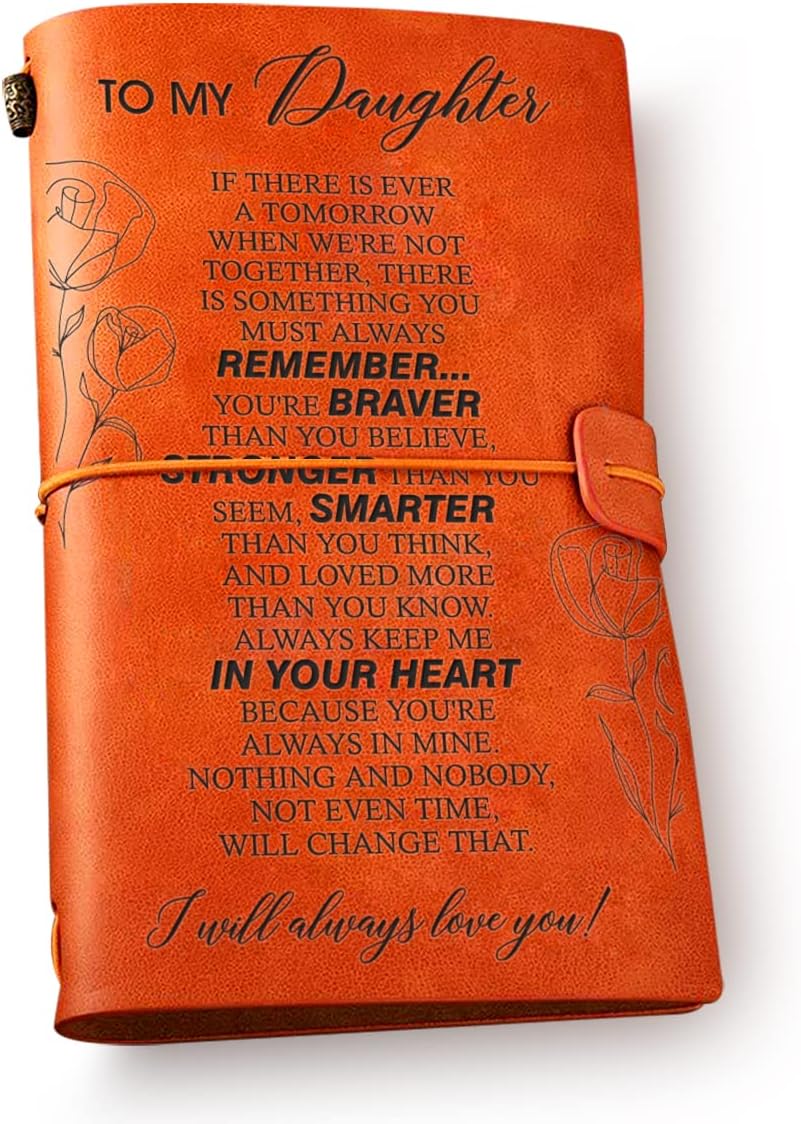 TO MY Daughter
IF THERE IS EVER
A TOMORROW
WHEN WE'RE NOT
TOGETHER, THERE
IS SOMETHING YOU
MUST ALWAYS
REMEMBER...
YOU'RE BRAVER
THAN YOU BELIEVE,
STRONGER THAN YOU
SEEM, SMARTER
THAN YOU THINK,
AND LOVED MORE
THAN YOU KNOW.
ALWAYS KEEP ME
IN YOUR HEART
BECAUSE YOU'RE
ALWAYS IN MINE.
NOTHING AND NOBODY,
NOT EVEN TIME,
WILL CHANGE THAT.
I will always love you!